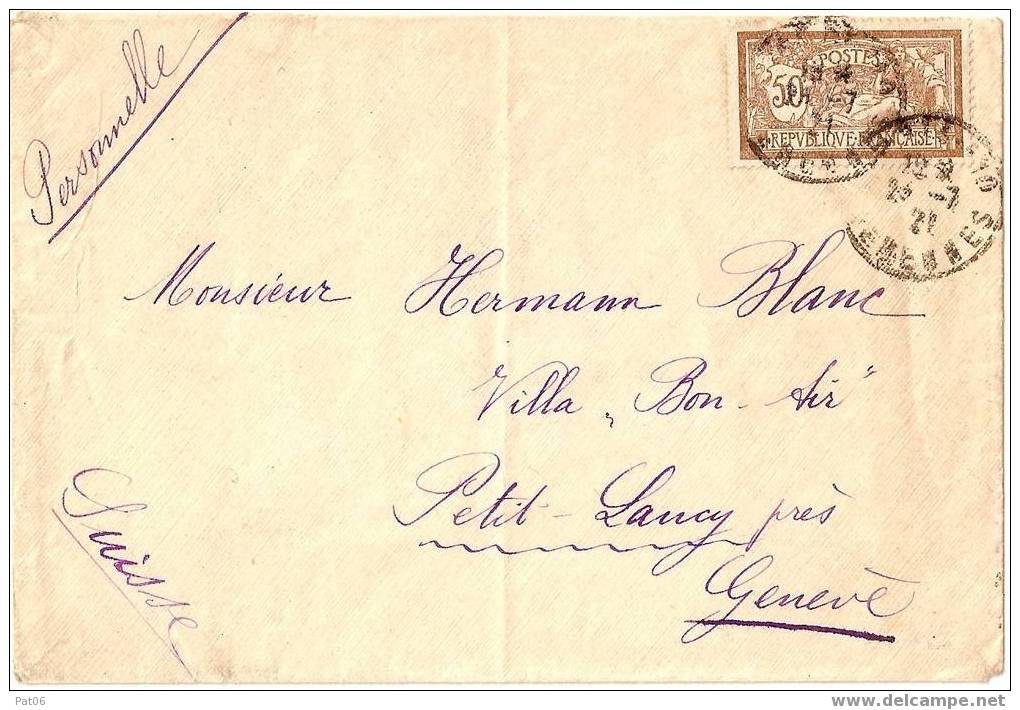 Personnelle
50c POSTES
REPVBLIQVE FRANÇAISE
Monsieur Hermann Blanc
Villa „Bon-Air"
Petit-Lancy près
Genevè
Suisse
Pat06
www.delcampe.net